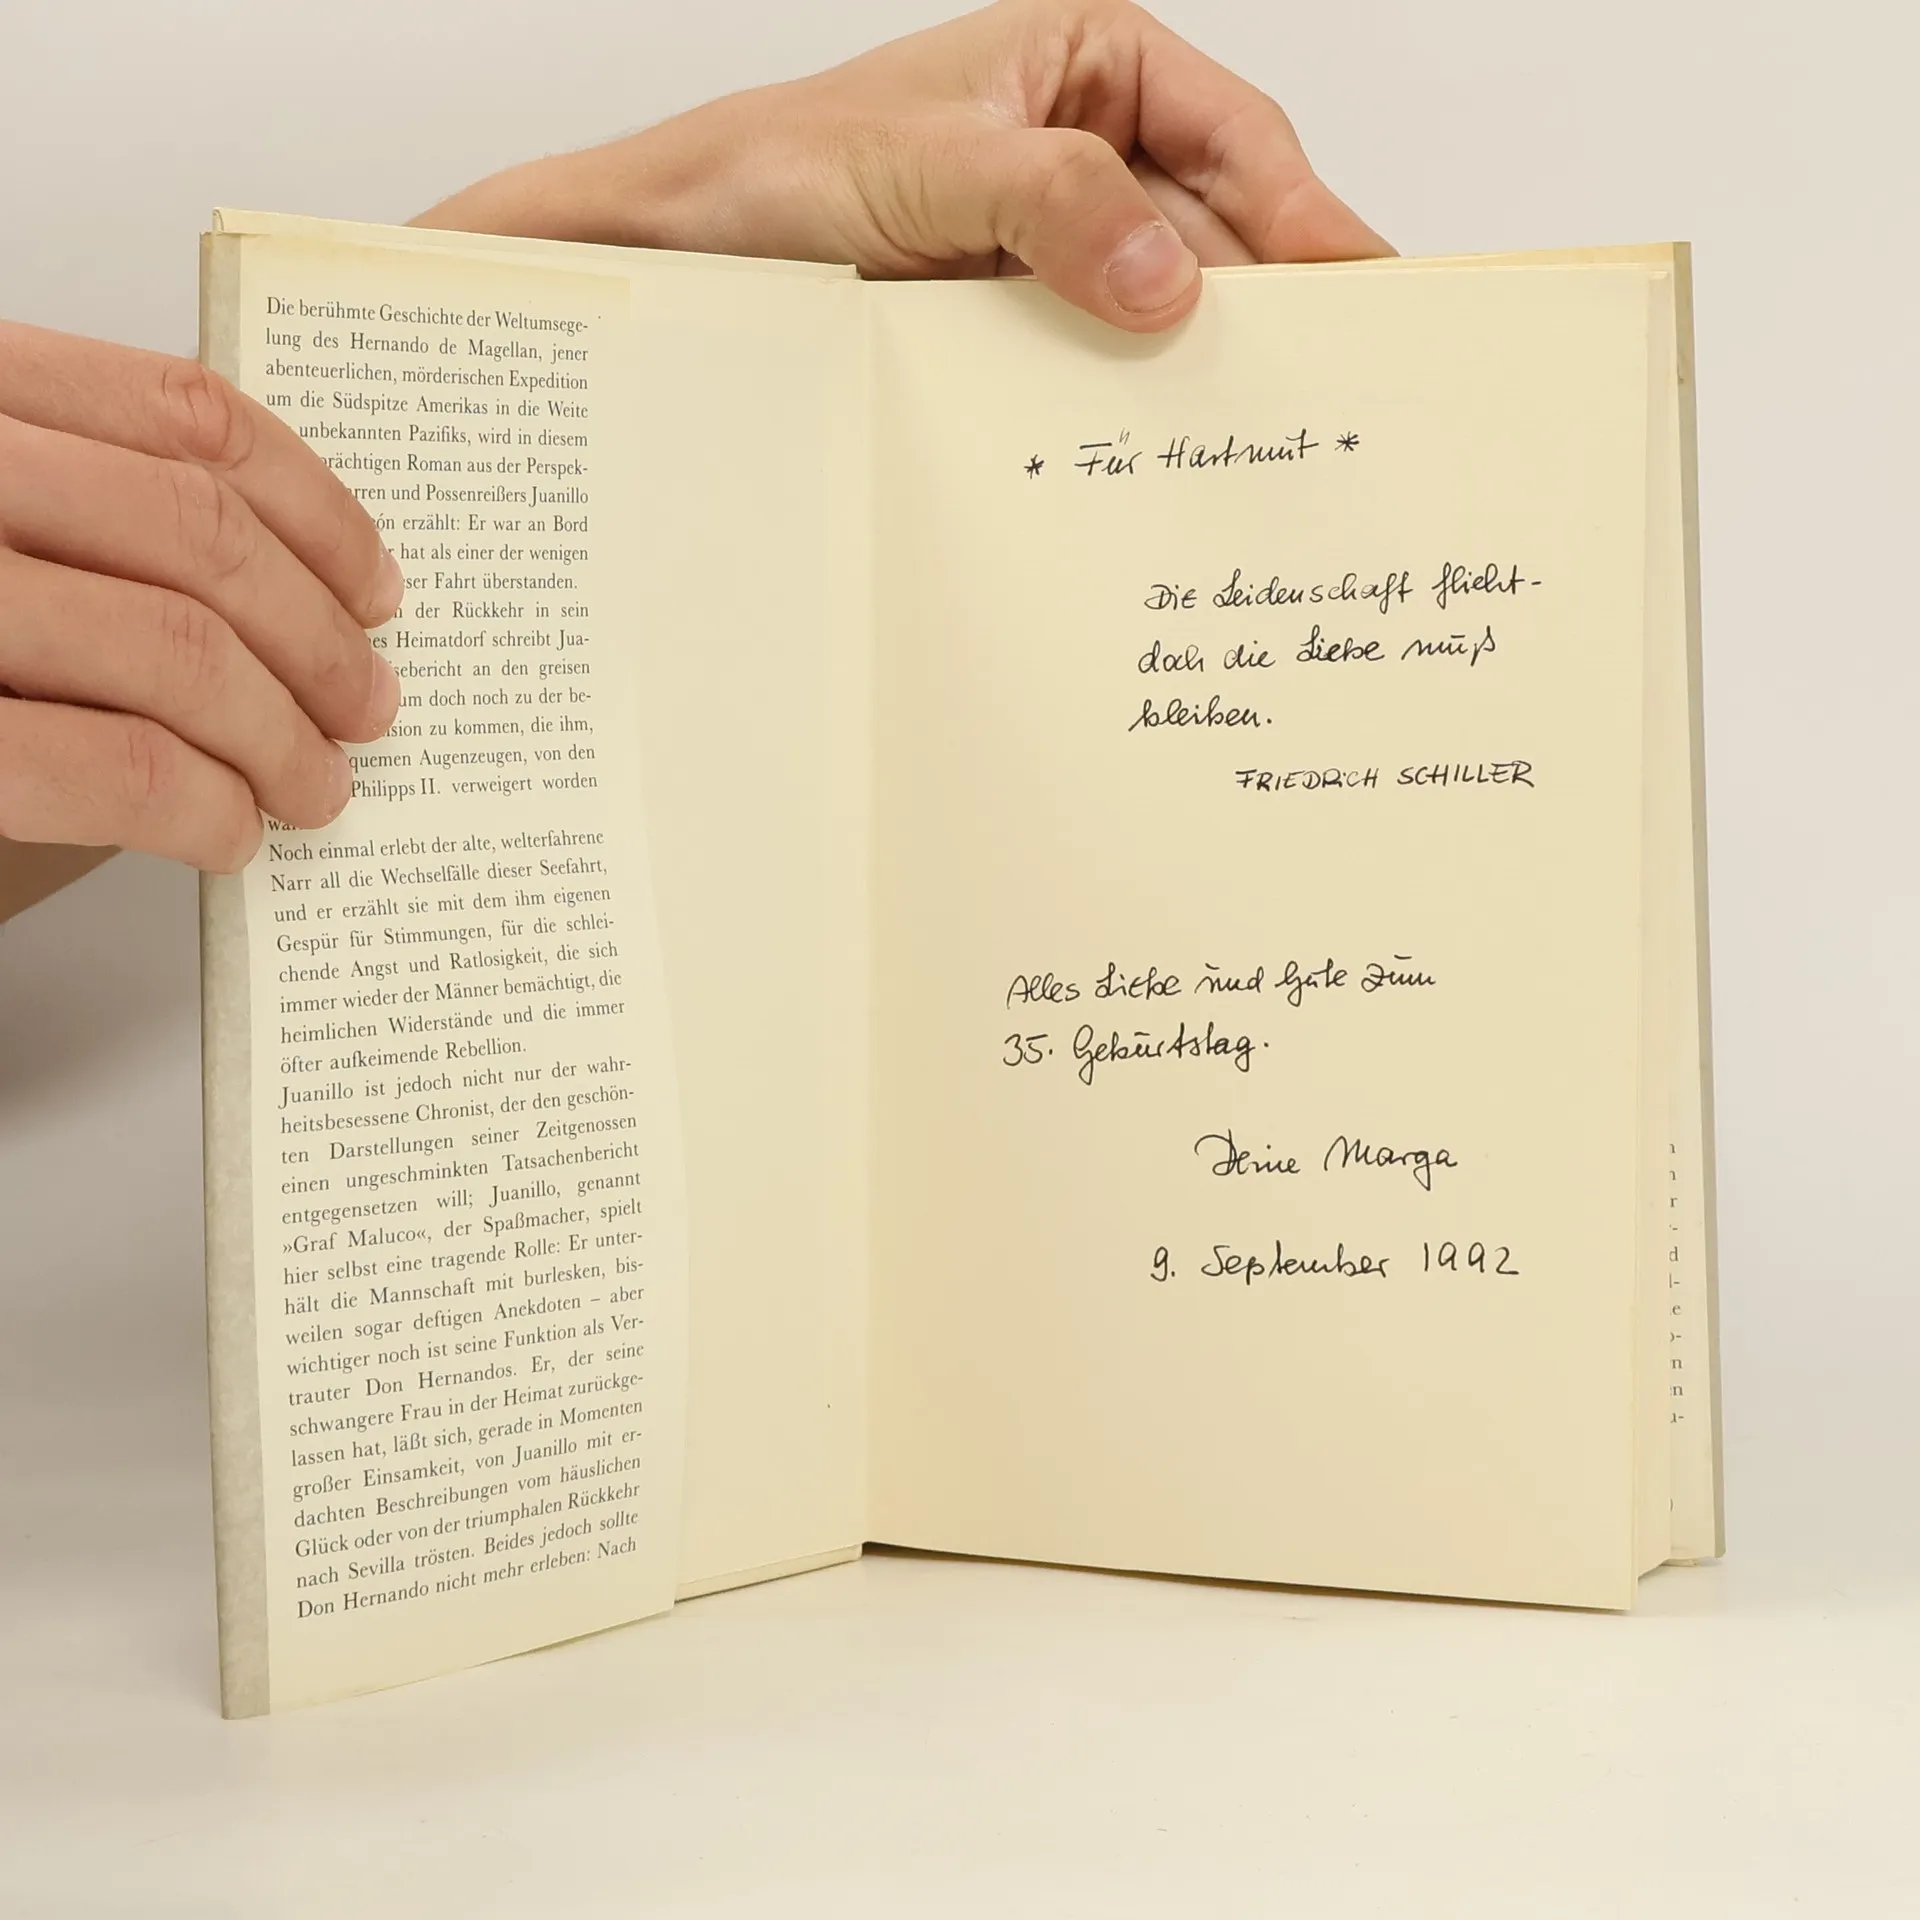 Die berühmte Geschichte der Weltumsege-
lung des Hernando de Magellan, jener
abenteuerlichen, mörderischen Expedition
um die Südspitze Amerikas in die Weite
unbekannten Pazifiks, wird in diesem
rächtigen Roman aus der Perspek-
rren und Possenreißers Juanillo
ón erzählt: Er war an Bord
r hat als einer der wenigen
ser Fahrt überstanden.
der Rückkehr in sein
es Heimatdorf schreibt Jua-
sebericht an den greisen
um doch noch zu der be-
sion zu kommen, die ihm,
quemen Augenzeugen, von den
Philipps II. verweigert worden
wa
Noch einmal erlebt der alte, welterfahrene
Narr all die Wechselfälle dieser Seefahrt,
und er erzählt sie mit dem ihm eigenen
Gespür für Stimmungen, für die schlei-
chende Angst und Ratlosigkeit, die sich
immer wieder der Männer bemächtigt, die
heimlichen Widerstände und die immer
öfter aufkeimende Rebellion.
Juanillo ist jedoch nicht nur der wahr-
heitsbesessene Chronist, der den geschön-
ten Darstellungen seiner Zeitgenossen
einen ungeschminkten Tatsachenbericht
entgegensetzen will; Juanillo, genannt
»Graf Maluco«, der Spaßmacher, spielt
hier selbst eine tragende Rolle: Er unter-
hält die Mannschaft mit burlesken, bis-
weilen sogar deftigen Anekdoten – aber
wichtiger noch ist seine Funktion als Ver-
trauter Don Hernandos. Er, der seine
schwangere Frau in der Heimat zurückge-
lassen hat, läßt sich, gerade in Momenten
großer Einsamkeit, von Juanillo mit er-
dachten Beschreibungen vom häuslichen
Glück oder von der triumphalen Rückkehr
nach Sevilla trösten. Beides jedoch sollte
Don Hernando nicht mehr erleben: Nach
* Für Hartmut *
Die Leidenschaft flieht -
doch die Liebe muß
bleiben.
FRIEDRICH SCHILLER
Alles Liebe und Gute zum
35. Geburtstag.
Deine Marga
9. September 1992